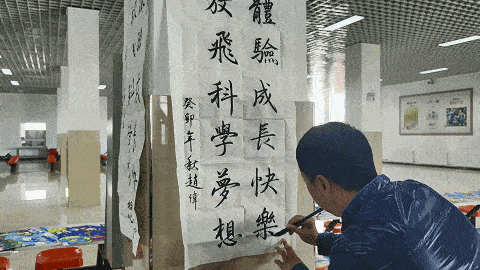 體驗成長快樂
放飛科學夢想
癸卯年秋趙偉